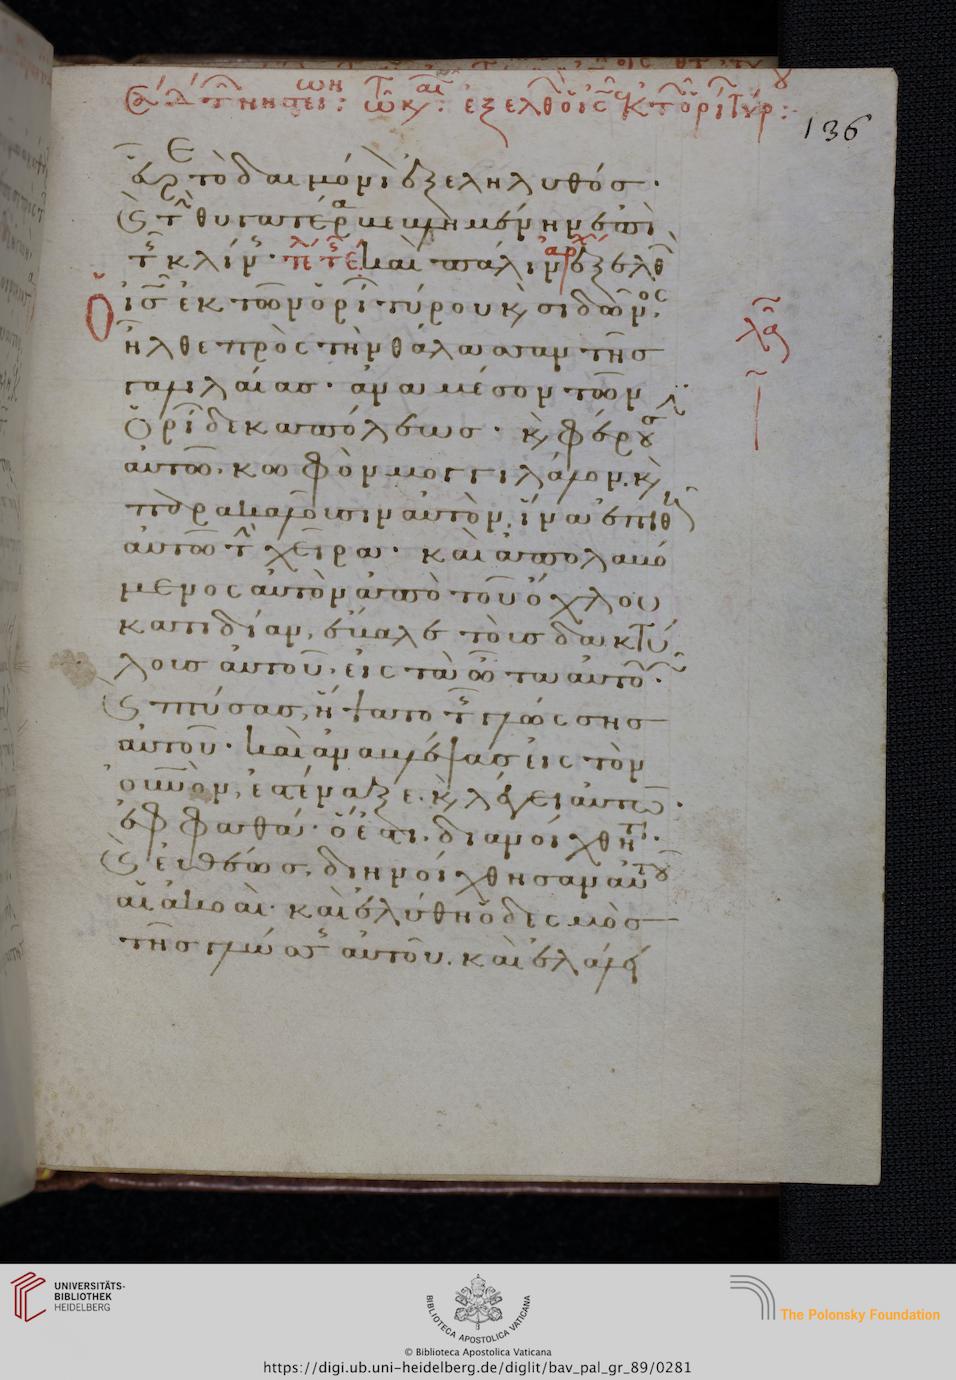 136
εὗρε τὸ δαιμόνι ἐξεληλυθός.
κ τ θυγατέρα βεβλημένην ἐπὶ
τῆς κλίν. τε καὶ πάλιν ἐξελθ
ὁ ις ἐκ τῶν ὁρί τύρου κ σιδῶνος,
ἦλθε πρὸς τὴν θάλασσαν τῆς
γαλιλαίας. ἀνα μέσον τῶν
ὁρί δεκαπόλεως. κ φέρουσιν
αὐτῶ κωφὸν μογγιλάλον. κ
παρακαλοῦσιν αὐτὸν, ἵνα ἐπιθῆ
αὐτῶ τ χεῖρα. καὶ ἀπολαβό
μενος αὐτὸν ἀπὸ τοῦ ὄχλου
κατιδίαν, ἔβαλε τοὺς δακτύ
λους αὐτοῦ, εἰς τὰ ὦτα αὐτοῦ.
κ πτύσας, ἥψατο τῆς γλώσσης
αὐτοῦ. καὶ ἀναβλέψας εἰς τὸν
οὐνὸν, ἐστέναξε. κ λέγει αὐτῶ.
ἐφφαθά. ὅ ἐστι, διανοίχθητι.
κ εὐθέως, διηνοίχθησαν αὐτοῦ
αἱ ἀκοαὶ. καὶ ἐλύθη ὁ δεσμὸς
τῆς γλώσσης αὐτοῦ. καὶ ἐλάλει
UNIVERSITÄTS-
BIBLIOTHEK
HEIDELBERG
BIBLIOTECA APOSTOLICA VATICANA
The Polonsky Foundation
© Biblioteca Apostolica Vaticana
https://digi.ub.uni-heidelberg.de/diglit/bav_pal_gr_89/0281